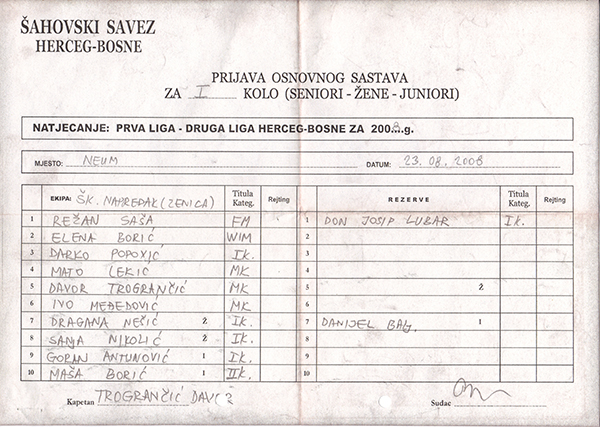 ŠAHOVSKI SAVEZ
HERCEG-BOSNE
PRIJAVA OSNOVNOG SASTAVA
ZA I KOLO (SENIORI - ŽENE - JUNIORI)
NATJECANJE: PRVA LIGA - DRUGA LIGA HERCEG-BOSNE ZA 2008.g.
MJESTO: NEUM DATUM: 23.08.2008
EKIPA: ŠK. NAPREDAK (ZENICA) Titula Kateg. Rejting REZERVE Titula Kateg. Rejting
1 REŽAN SAŠA FM 1 DON JOSIP LUBAR Ik.
2 ELENA BORIĆ WIM 2
3 DARKO POPOVIĆ Ik. 3
4 MATO LEKIĆ MK 4
5 DAVOR TROGRANČIĆ MK 5 Ž
6 IVO MEĐEDOVIĆ MK 6
7 DRAGANA NEŠIĆ Ž Ik. 7 DANIJEL BAG. 1
8 SANJA NIKOLIĆ Ž Ik. 8
9 GORAN ANTUNOVIĆ 1 Ik. 9
10 MAŠA BORIĆ 1 IIk. 10
Kapetan TROGRANČIĆ Sudac